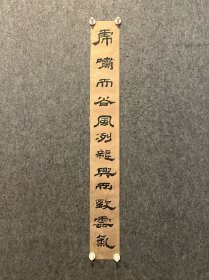 虎嘯而谷風冽龍興而致雲氣